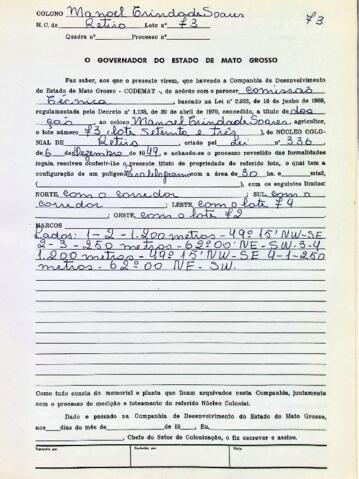 COLONO Manoel Trindade Soares 73
N. C. de Retiro Lote n.º 73
Quadra n.º Processo n.º
O GOVERNADOR DO ESTADO DE MATO GROSSO
Faz saber, aos que o presente virem, que havendo a Companhia de Desenvolvimento
do Estado de Mato Grosso - CODEMAT -, de acôrdo com o parecer comissão
Técnica, baseado na Lei n.º 2.925, de 10 de junho de 1969,
regulamentada pelo Decreto n.º 1.138, de 30 de abril de 1970, concedido, a título de doa
ção, ao colono Manoel Trindade Soares, agricultor,
o lote número 73 (lote setenta e três), do NÚCLEO COLO-
NIAL DE Retiro, criado pela Lei n.º 336
de 6 de Dezembro de 1949, e achando-se o processo revestido das formalidades
legais, resolveu conferir-lhe o presente título de propriedade do referido lote, o qual tem a
configuração de um polígono com a área de 30 ha. e m2,
( ), com os seguintes limites:
NORTE, com o corredor; SUL, com o
corredor; LESTE, com o lote 74
; OESTE, com o lote 72
MARCOS
Lados: 1-2-1.200 metros-49º15'NW-SE
2-3-250 metros-62º00'NE-SW. 3-4
1.200 metros-49º15'NW-SE 4-1-250
metros-62º00 NE-SW.
Como tudo consta do memorial e planta que ficam arquivados nesta Companhia, juntamente
com o processo de medição e loteamento do referido Núcleo Colonial.
Dado e passado na Companhia de Desenvolvimento do Estado de Mato Grosso,
aos dias do mês de de 19 , Eu,
, Chefe do Setor de Colonização, o fiz escrever e assino.
Transcrito por: Conferido por: Visto